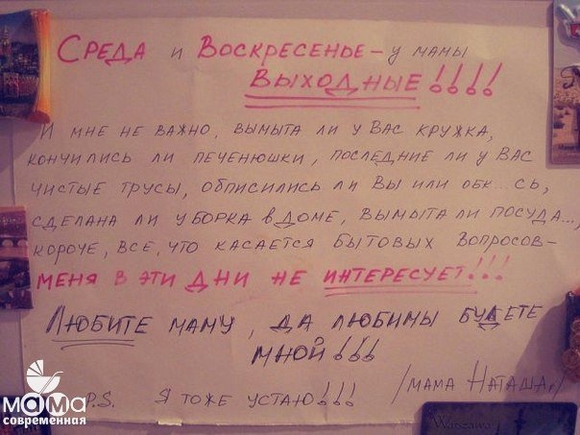 Среда и Воскресенье – у мамы
выходные!!!!
И мне не важно, вымыта ли у вас кружка,
кончились ли печенюшки, последние ли у вас
чистые трусы, обписились ли вы или обк...сь,
сделана ли уборка в доме, вымыта ли посуда...,
короче, все, что касается бытовых вопросов –
меня в эти дни не интересует!!!
Любите маму, да любимы будете
мной!!!
/мама Наташа/
P.S. Я тоже устаю!!!
мама
современная
Warszawa